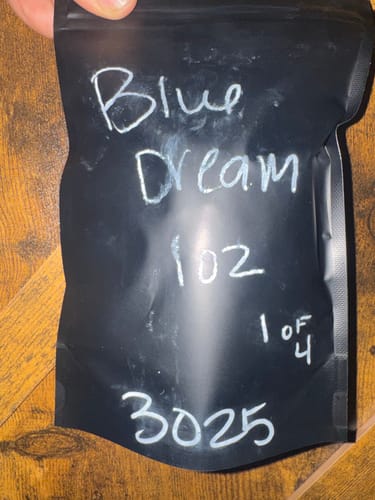 Blue
Dream
1oz
1 OF
4
3025